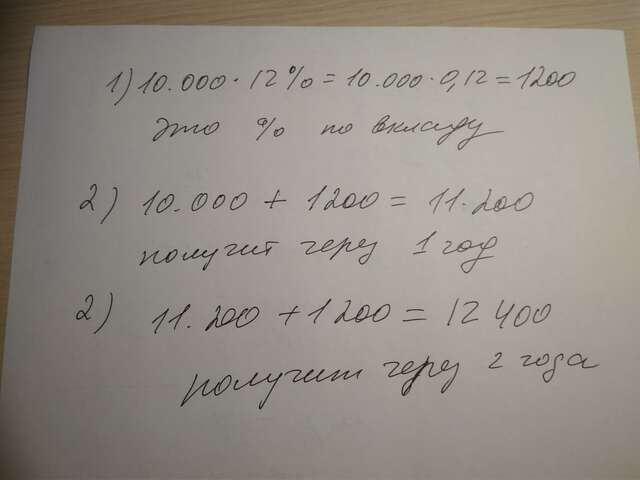 1) 10.000 · 12% = 10.000 · 0,12 = 1200
Это % по вкладу
2) 10.000 + 1200 = 11.200
получит через 1 год
2) 11.200 + 1200 = 12 400
получит через 2 года